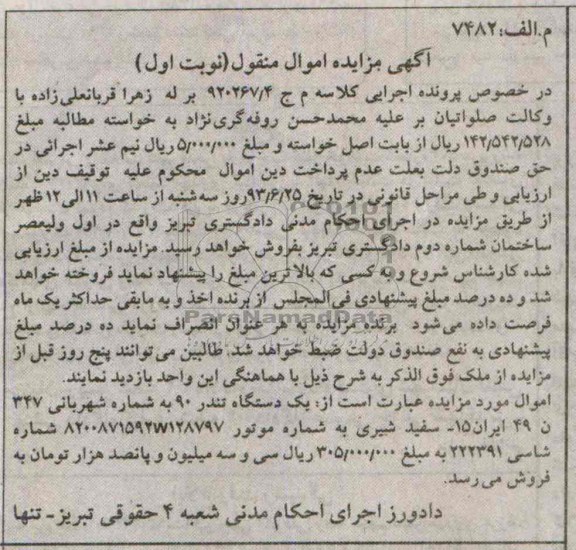 م.الف: ۷۴۸۲
آگهی مزایده اموال منقول (نوبت اول)
در خصوص پرونده اجرایی کلاسه م ج ۹۲۰۲۶۷/۴ بر له زهرا قربانعلی‌زاده با
وکالت صلواتیان بر علیه محمدحسن روفه‌گری‌نژاد به خواسته مطالبه مبلغ
۱۴۲/۵۴۲/۵۲۸ ریال از بابت اصل خواسته و مبلغ ۵/۰۰۰/۰۰۰ ریال نیم عشر اجرائی در
حق صندوق دلت بعلت عدم پرداخت دین اموال محکوم علیه توقیف دین از
ارزیابی و طی مراحل قانونی در تاریخ ۹۳/۶/۲۵ روز سه‌شنبه از ساعت ۱۱ الی ۱۲ ظهر
از طریق مزایده در اجرای احکام مدنی دادگستری تبریز واقع در اول ولیعصر
ساختمان شماره دوم دادگستری تبریز بفروش خواهد رسید. مزایده از مبلغ ارزیابی
شده کارشناس شروع و به کسی که بالاترین مبلغ را پیشنهاد نماید فروخته خواهد
شد و ده درصد مبلغ پیشنهادی فی‌المجلس از برنده اخذ و به مابقی حداکثر یک ماه
فرصت داده می‌شود برنده مزایده به هر عنوان انصراف نماید ده درصد مبلغ
پیشنهادی به نفع صندوق دولت ضبط خواهد شد. طالبین می‌توانند پنج روز قبل از
مزایده از ملک فوق الذکر به شرح ذیل با هماهنگی این واحد بازدید نمایند.
اموال مورد مزایده عبارت است از: یک دستگاه تندر ۹۰ به شماره شهربانی ۳۴۷
ن ۴۹ ایران ۱۵- سفید شیری به شماره موتور ۸۲۰۰۸۷۱۵۹۲W۱۲۸۷۹۷ شماره
شاسی ۲۲۲۳۹۱ به مبلغ ۳۰۵/۰۰۰/۰۰۰ ریال سی و سه میلیون و پانصد هزار تومان به
فروش می‌رسد.
دادورز اجرای احکام مدنی شعبه ۴ حقوقی تبریز - تنها
ParsNamadData